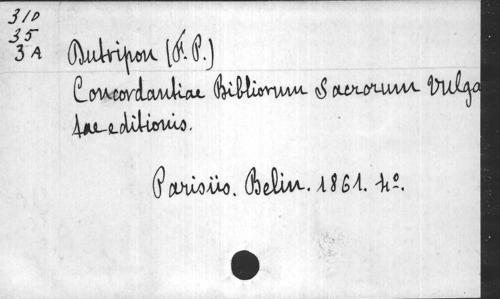 310
35
3A
Dutripon (F. P.)
Concordantiae Bibliorum Sacrorum Vulga
tae editionis.
Parisiis. Belin. 1861. 4º.